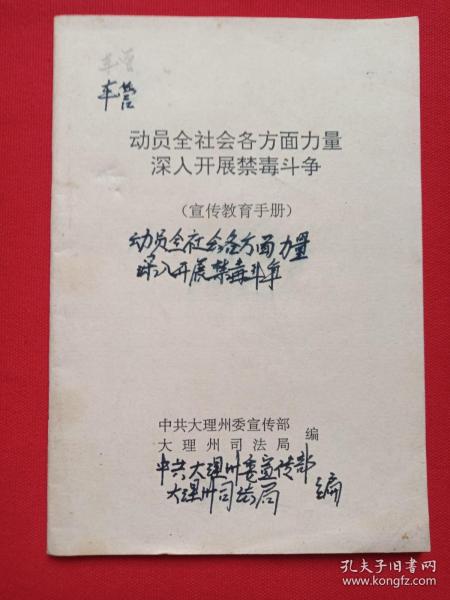 车营
车营
动员全社会各方面力量
深入开展禁毒斗争
（宣传教育手册）
动员全社会各方面力量
深入开展禁毒斗争
中共大理州委宣传部
大理州司法局
编
中共大理州委宣传部
大理州司法局
编
孔夫子旧书网
www.kongfz.com